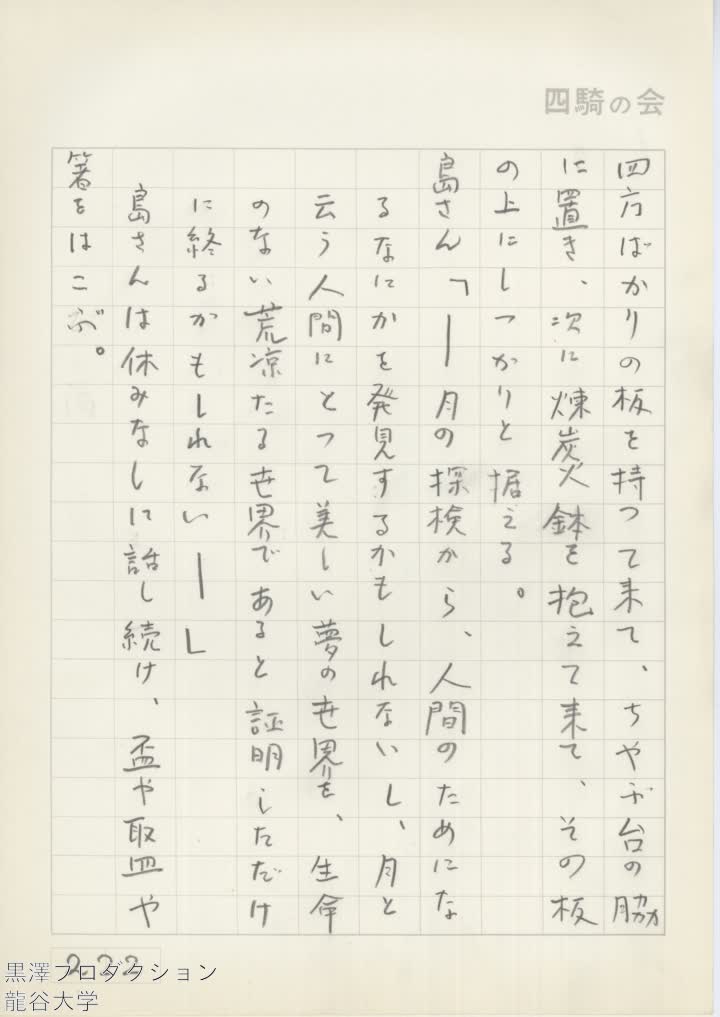 四騎の会
四方ばかりの板を持つて来て、ちやぶ台の脇
に置き、次に煉炭火鉢を抱えて来て、その板
の上にしつかりと据える。
島さん「―月の探検から、人間のためにな
るなにかを発見するかもしれないし、月と
云う人間にとつて美しい夢の世界を、生命
のない荒凉たる世界であると証明しただけ
に終るかもしれない―」
島さんは休みなしに話し続け、盃や取皿や
箸をはこぶ。
222
黒澤プロダクション
龍谷大学